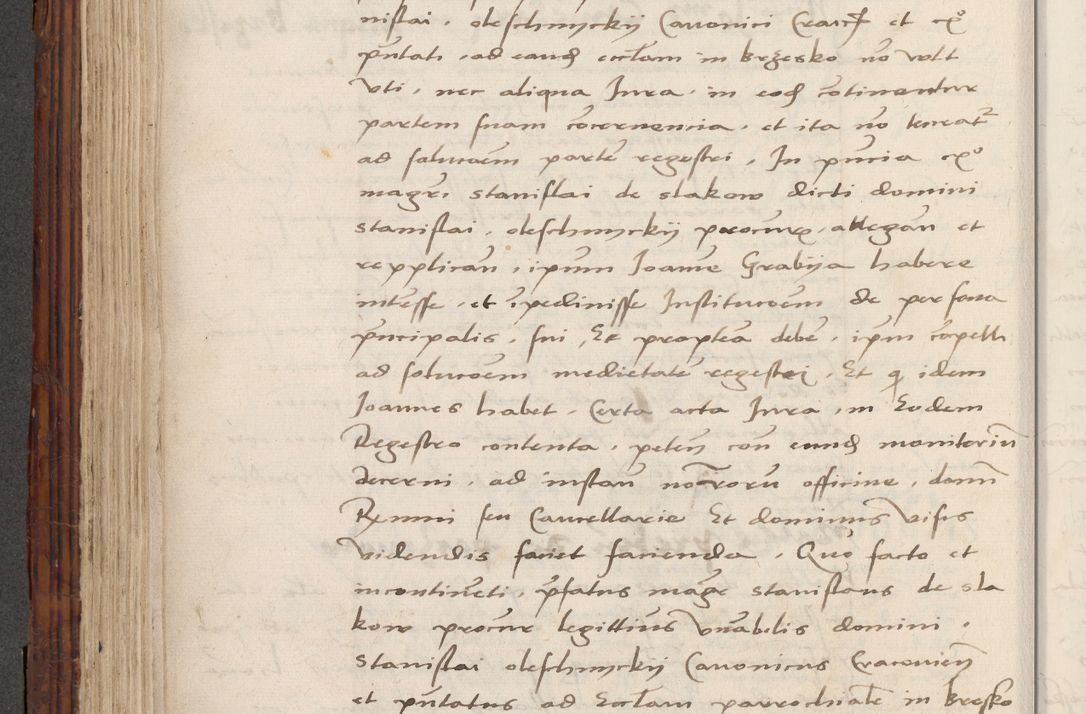 nislai . oleschnyckij Canonici Cracō et cō
pn̄tati . ad eand ecclām in brzesko nō vult
vti . nec aliqua Jura . in eod cōtinentur
partem suam cōcernencia . et ita nō teneat
ad solucoēm partē regestri . In pn̄cia
magrī stanislai de slakow dicti domini
stanislai . oleschnyckij procur . allegan̄ et
repplican̄ . ipsum Joanne Grabiya habere
intēsse . et īpedinisse Institucoēm de persona
prīncipalis . sui , Et proptēa debē . ipm cōpelli
ad solucoēm medietatē regestri . Et q idem
Joannes habet . Certa acta Jura . in Eodem
Regestro contenta . petēn con eund monitoriū
decerni . ad instan̄ notāroru officine . domī
Rxmni seu Cancellarie Et dominus visis
videndis faciet facienda . Quo facto et
incontinēti . p̄fatus magr stanislaus de sla
kow procur legittius vnabilis domini .
stanislai oleschnyckij Canonicus Cracovien̄
et pn̄tatus ad Ecclām parrochialē in bresko